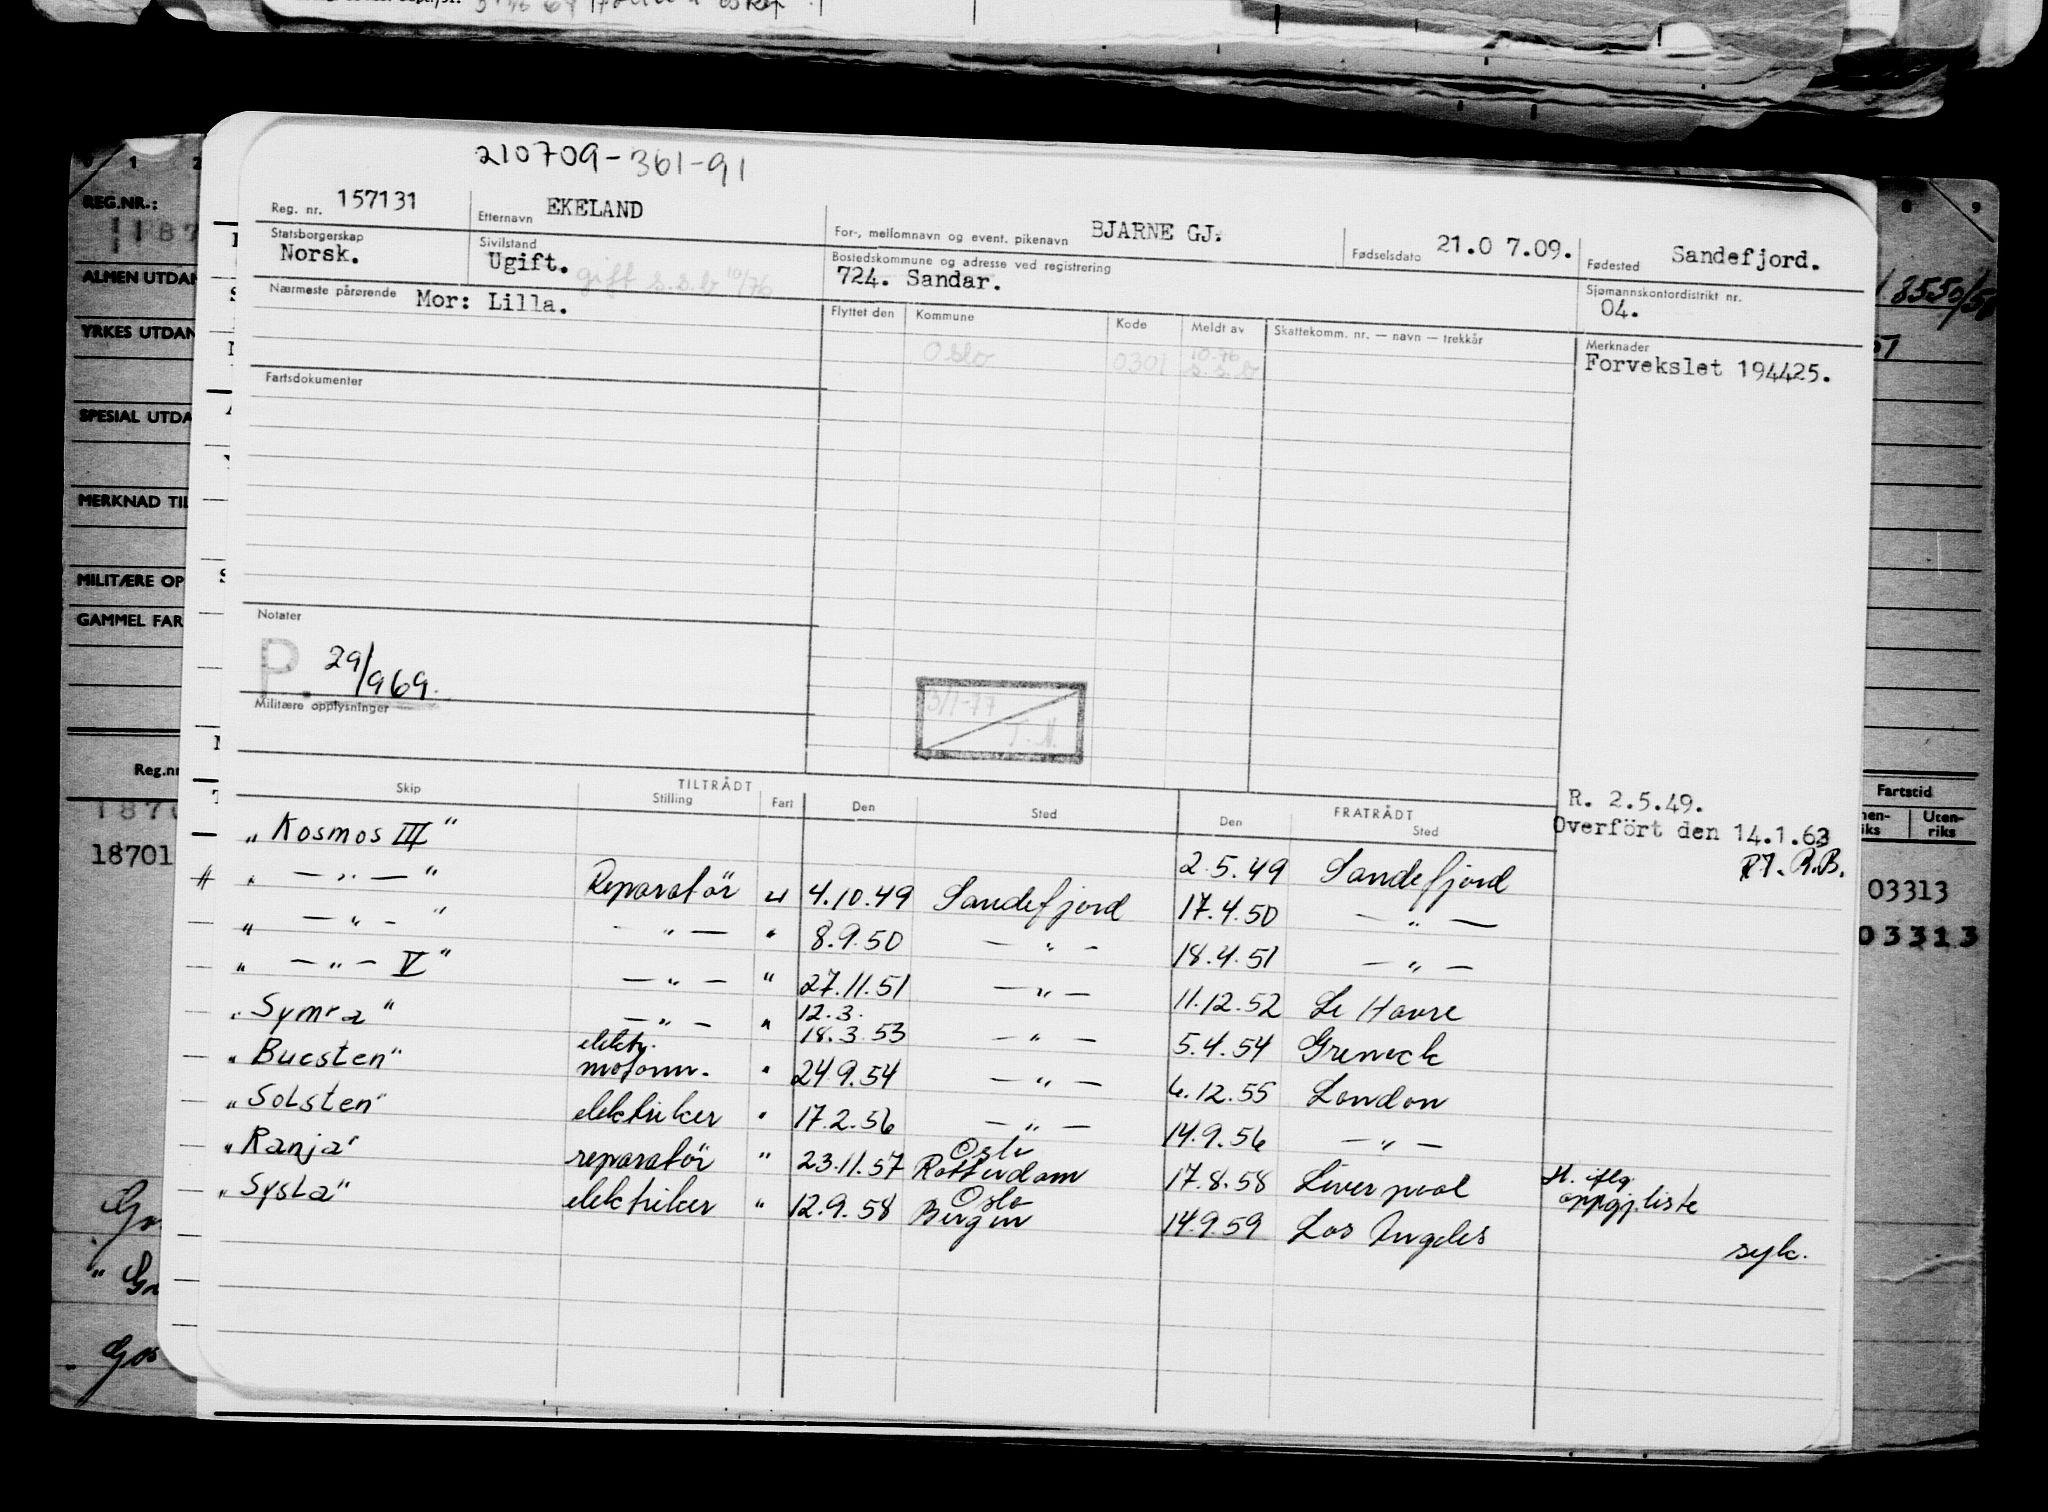 210709-361-91
Reg. nr. 157131 Etternavn EKELAND For-, mellomnavn og event. pikenavn BJARNE GJ. Fødselsdato 21.0 7.09. Fødested Sandefjord.
Statsborgerskap Norsk. Sivilstand Ugift. gift s.s.b 10/76 Bostedskommune og adresse ved registrering 724. Sandar. Sjømannskontordistrikt nr. 04.
Nærmeste pårørende Mor: Lilla. Flyttet den Kommune Kode Meldt av Skattekomm. nr. — navn — trekkår Merknader
Oslo 0301 10-76 s.s.b Forvekslet 194425.
Fartsdokumenter
Notater
P. 29/969.
Militære opplysninger
3/1-77
T. N.
Skip TILTRÅDT Stilling Fart Den Sted Den FRATRÅDT Sted
R. 2.5.49.
Overført den 14.1.63
R.B.
"Kosmos III" 2.5.49 Sandefjord
" — " — " Reparatör u 4.10.49 Sandefjord 17.4.50 — " —
" — " - " - " — " 8.9.50 — " - 18.4.51 — " —
" — " — V" — " — " 27.11.51 — " — 11.12.52 Le Havre
12.3.
"Symra" — " — " 18.3.53 — " — 5.4.54
elektr.
"Buesten" motorm. " 24.9.54 — " — 6.12.55 London
"Solsten" elektriker " 17.2.56 — " — 14.9.56 — " —
Oslo
"Ranja" reparatör " 23.11.57 Rotterdam 17.8.58 Liverpool oppgj.liste
Oslo
"Sysla" elektriker " 12.9.58 Bergen 14.9.59 Los Angeles syk.
0 1 2
REG.NR.:
1187
ALMEN UTDAN
YRKES UTDAN
SPESIAL UTDA
MERKNAD TIL
MILITÆRE OP
GAMMEL FAR
Reg.nr
1870
18701
8 9
8550/5
57
Fartstid
nen-
iks
Uten-
riks
03313
03313